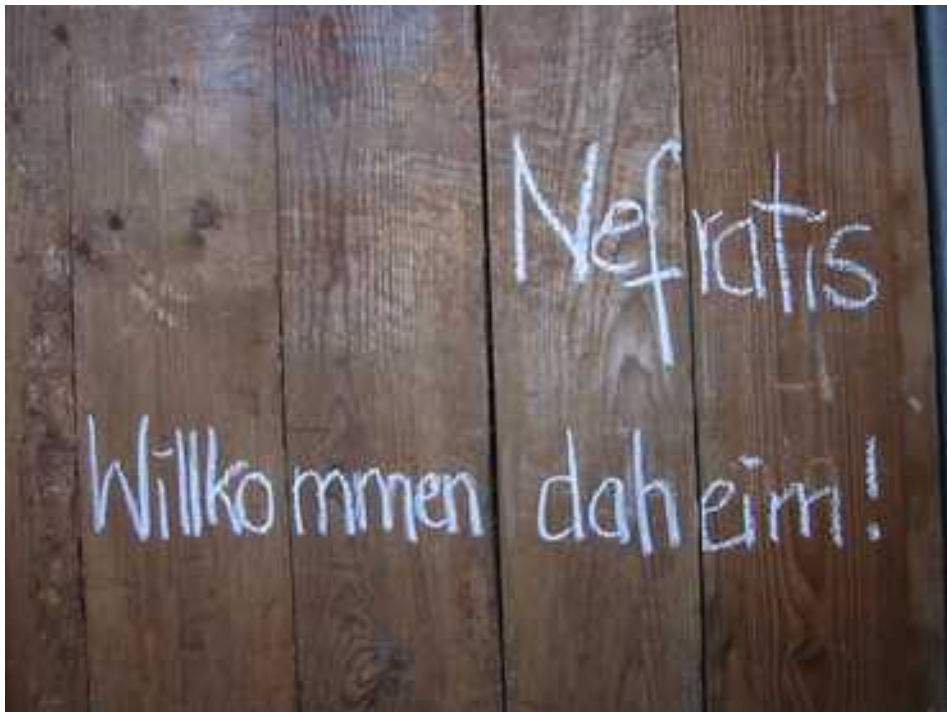 Nefratis
Willkommen daheim!